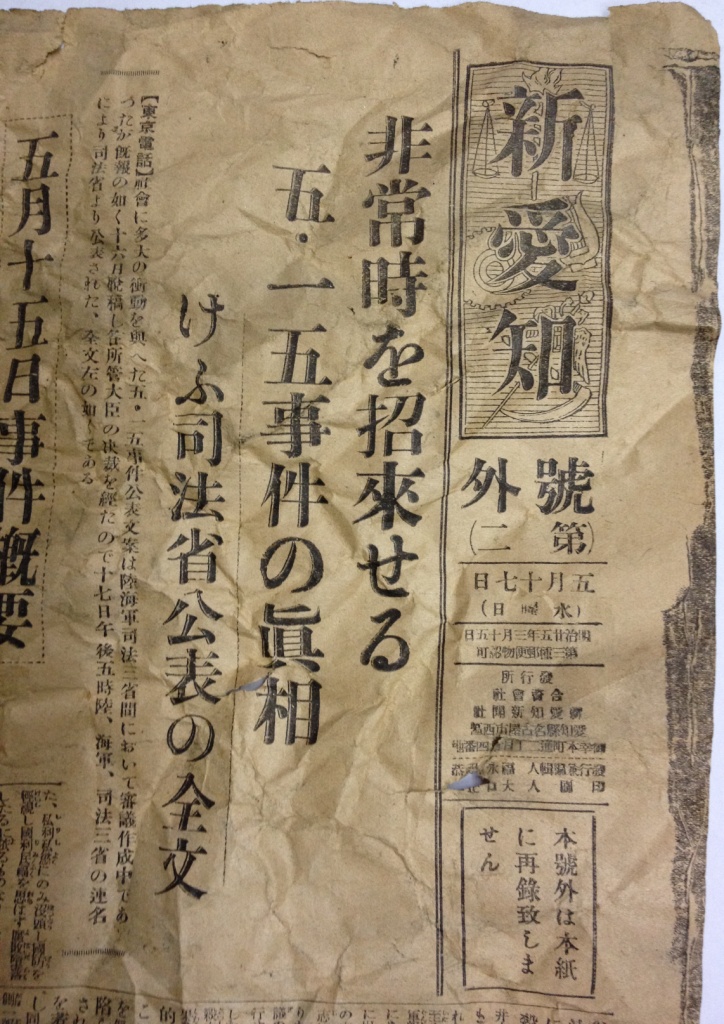 新愛知
號外
(第二)
五月十七日
(水曜日)
明治廿五年三月十五日
第三種郵便物認可
發行所
合資會社
新愛知新聞社
本號外は本紙
に再錄致しま
せん
非常時を招來せる
五・一五事件の眞相
けふ司法省公表の全文
【東京電話】社會に多大の衝動を與へた五・一五事件公表文案は陸海軍司法三省間において審議作成中であ
つたが旣報の如く十六日脫稿し各所管大臣の決裁を經たので十七日午後五時陸、海軍、司法三省の連名
により司法省より公表された、全文左の如くである
五月十五日事件概要